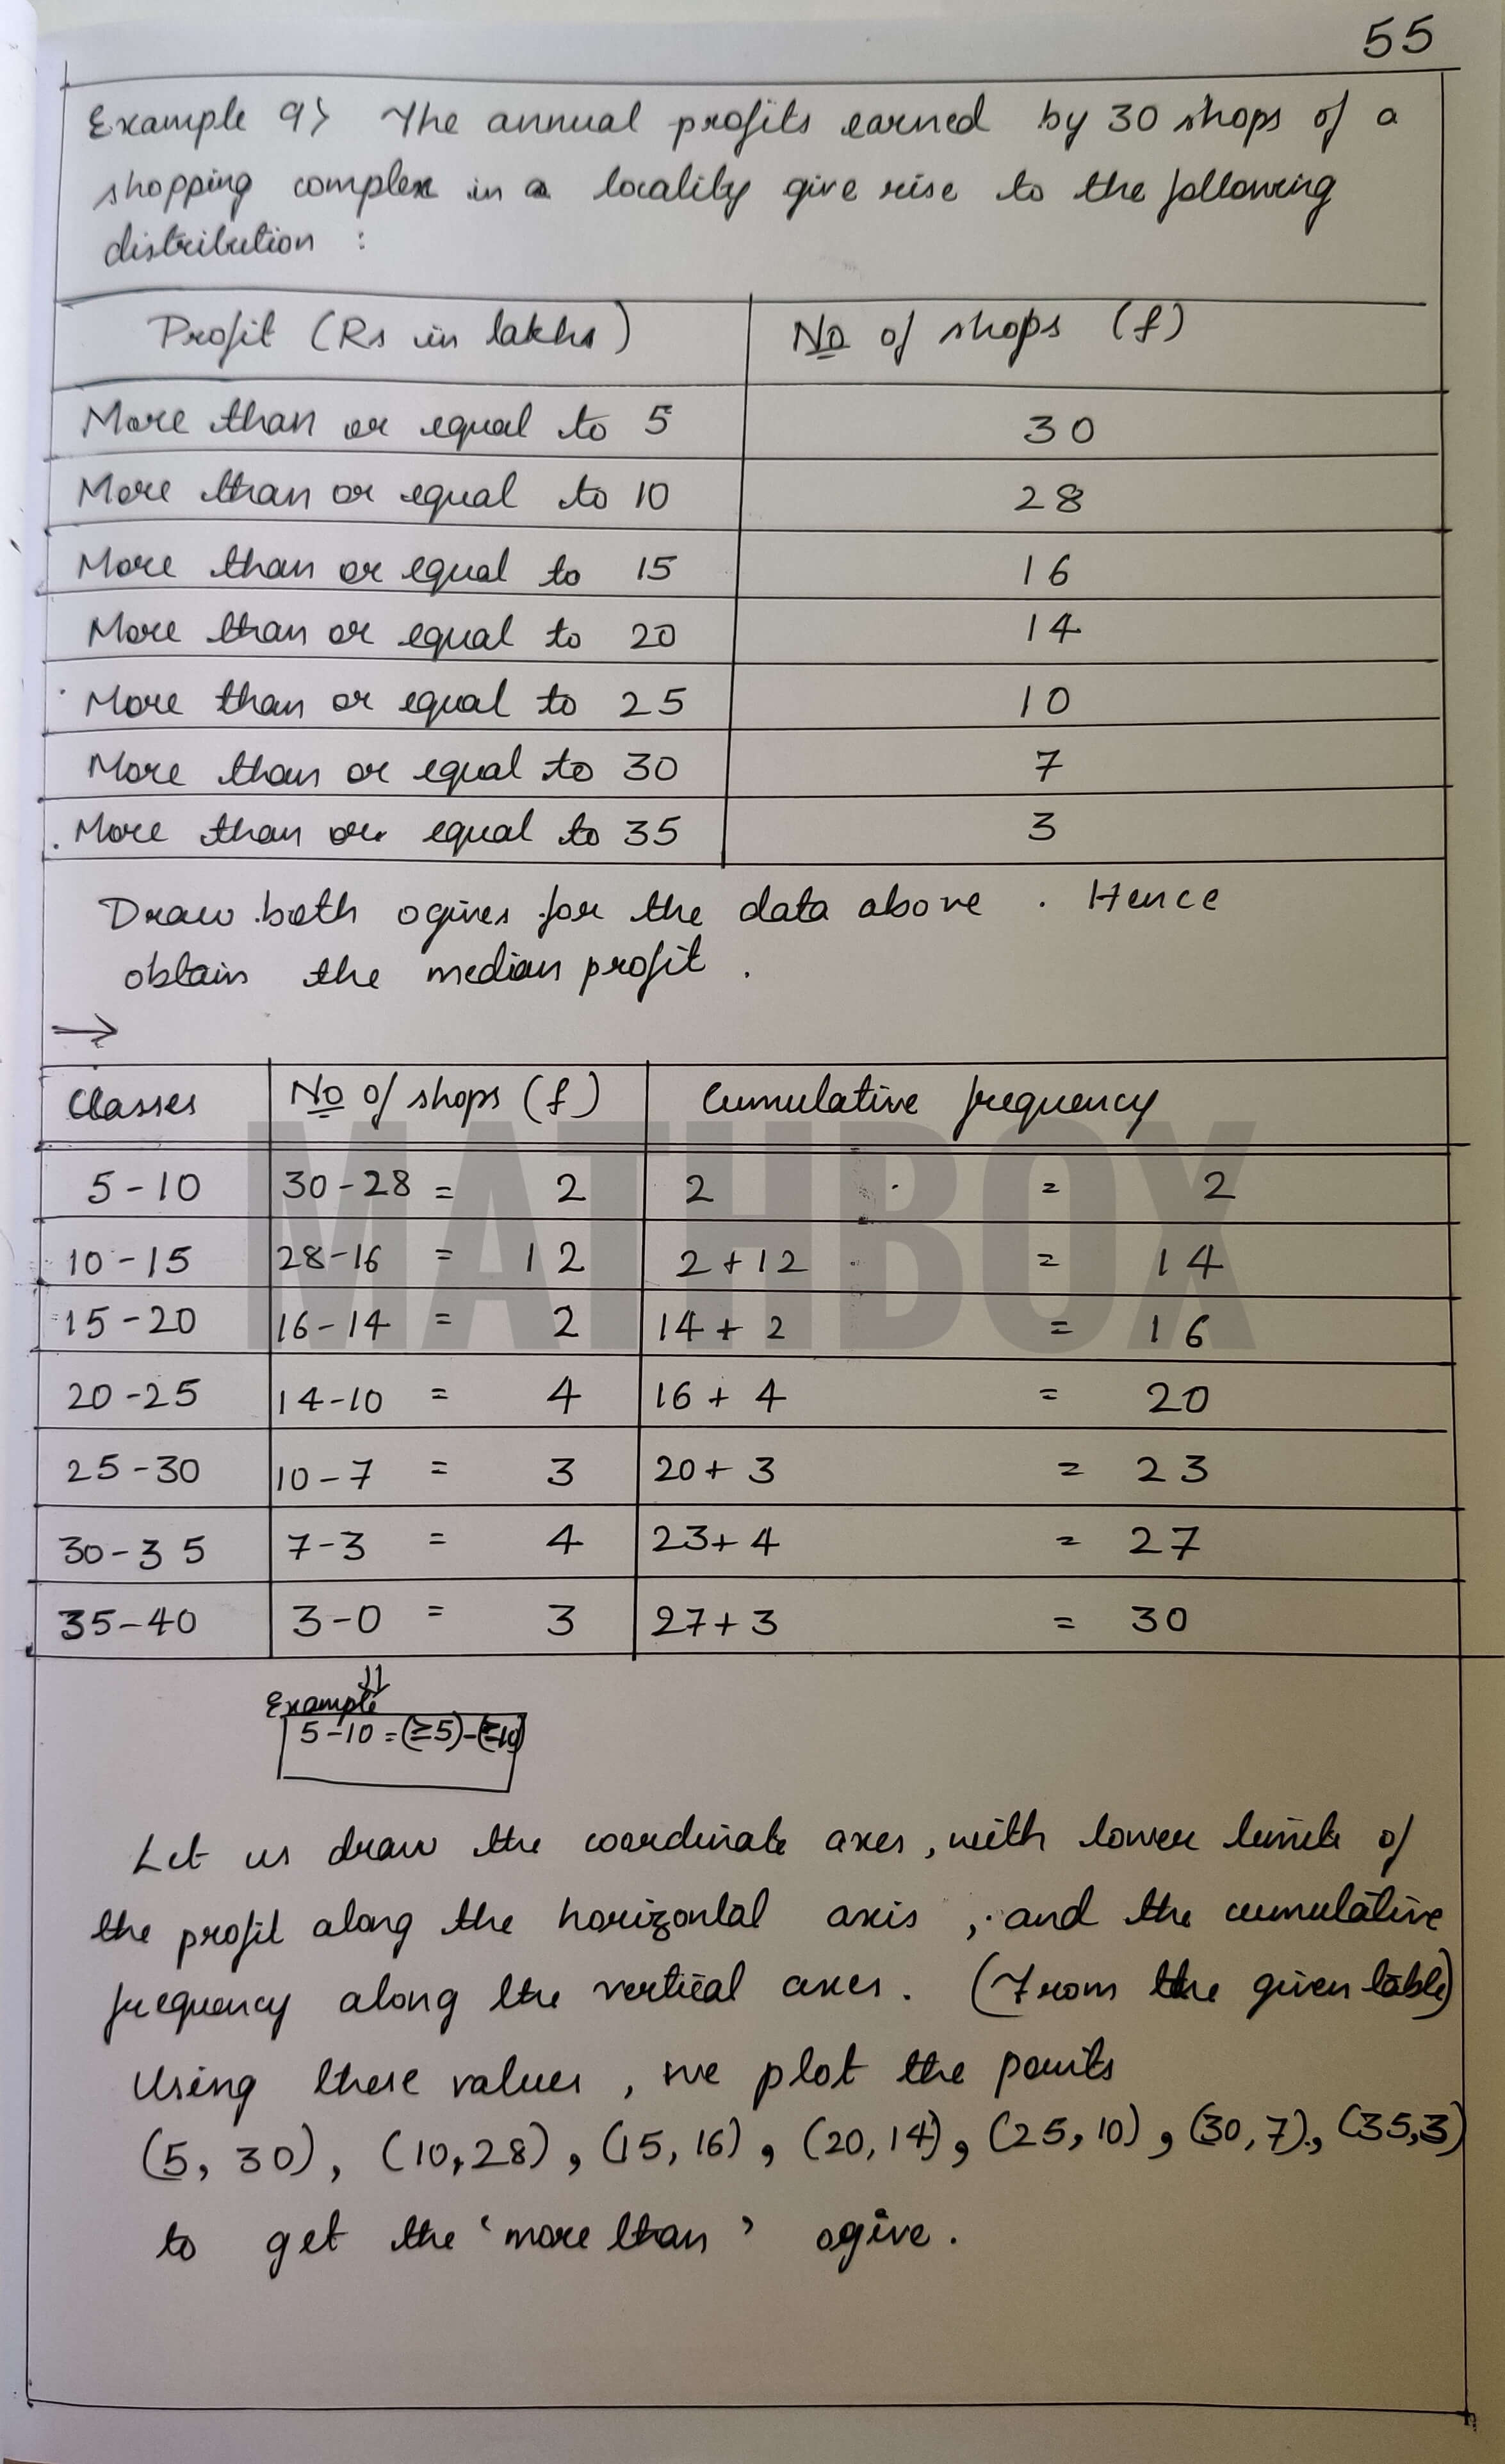 55
Example 9> The annual profits earned by 30 shops of a
shopping complex in a locality give rise to the following
distribution :
Profit (Rs in lakhs) No of shops (f)
More than or equal to 5 30
More than or equal to 10 28
More than or equal to 15 16
More than or equal to 20 14
More than or equal to 25 10
More than or equal to 30 7
More than or equal to 35 3
Draw both ogives for the data above . Hence
obtain the median profit .
→
Classes No of shops (f) Cumulative frequency
5-10 30-28 = 2 2 = 2
10-15 28-16 = 12 2+12 = 14
15-20 16-14 = 2 14+2 = 16
20-25 14-10 = 4 16+4 = 20
25-30 10-7 = 3 20+3 = 23
30-35 7-3 = 4 23+4 = 27
35-40 3-0 = 3 27+3 = 30
MATHBOX
Example
5-10 = (≥5)-(≥10)
Let us draw the coordinate axes, with lower limits of
the profit along the horizontal axis , and the cumulative
frequency along the vertical axes . (From the given table)
Using these values , we plot the points
(5, 30), (10,28), (15, 16), (20,14), (25, 10), (30,7), (35,3)
to get the 'more than' ogive .